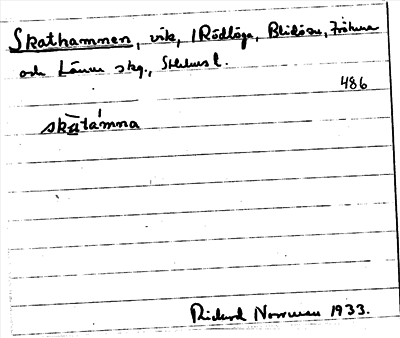 Skathamnen, vik, i Rödlöga, Blidösu, Fröhuna
och Länna skg., Sthlms l.
486
skātámna
Rickard Norrman 1933.